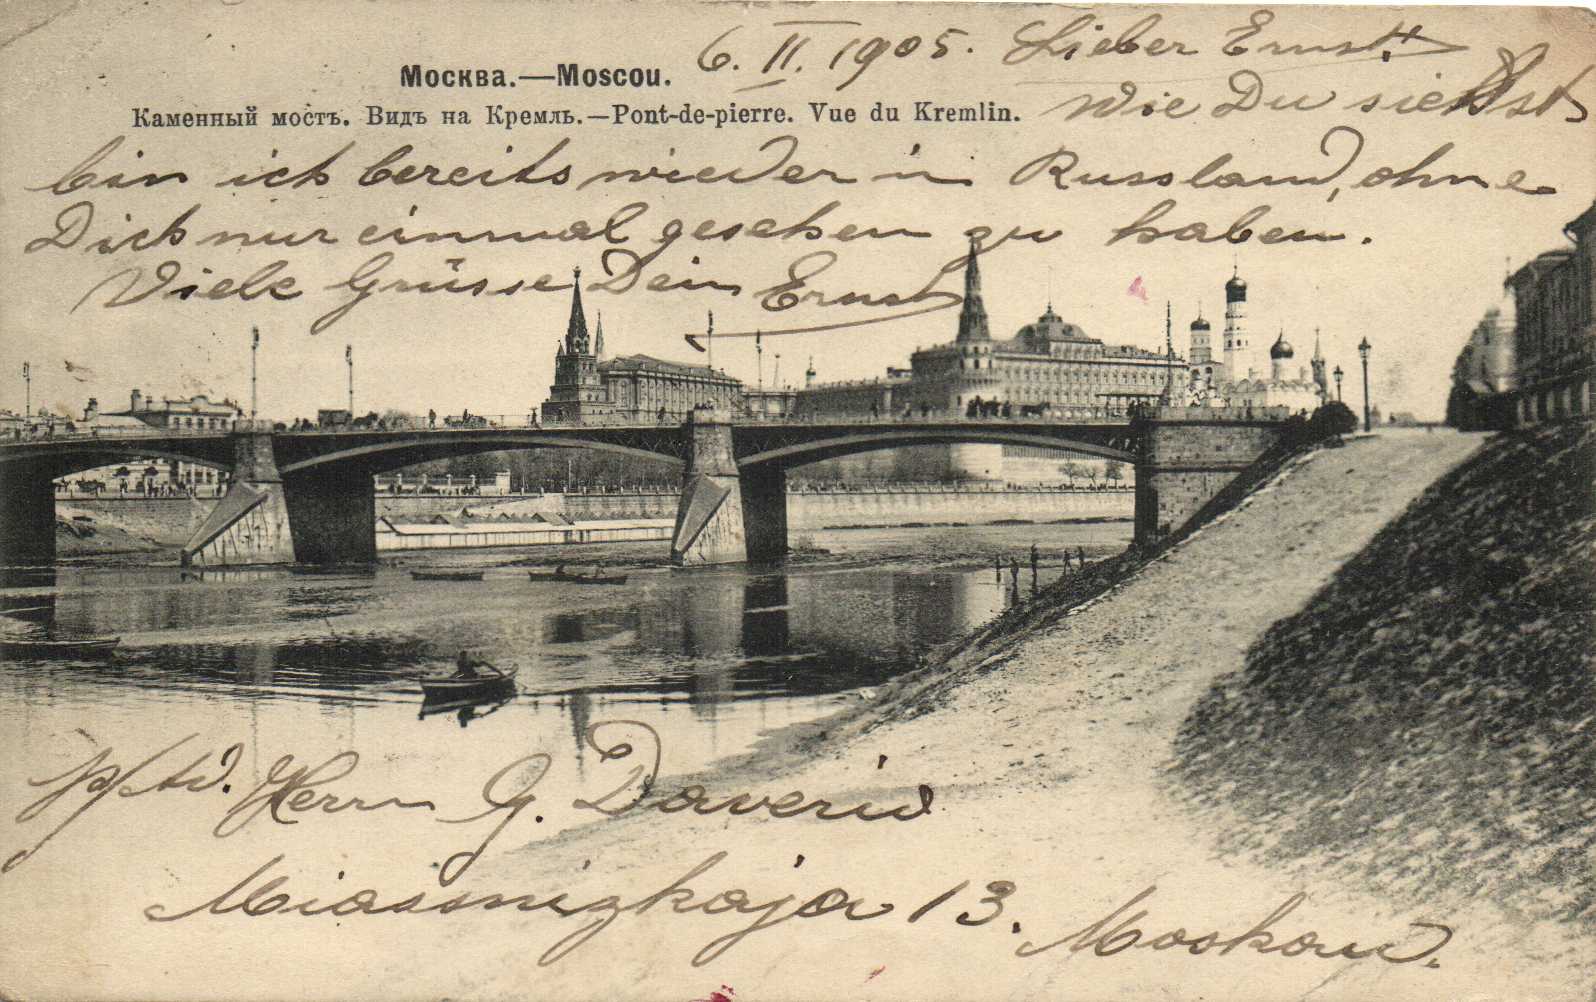 6. II. 1905. Lieber Ernst!
Москва.—Moscou.
Каменный мостъ. Видъ на Кремль.—Pont-de-pierre. Vue du Kremlin.
Wie Du siehst
bin ich bereits wieder in Russland, ohne
Dich nur einmal gesehen zu haben.
Viele Grüsse Dein Ernst
Herrn G. Daverio
Miassnizkaja 13.
Moskau.